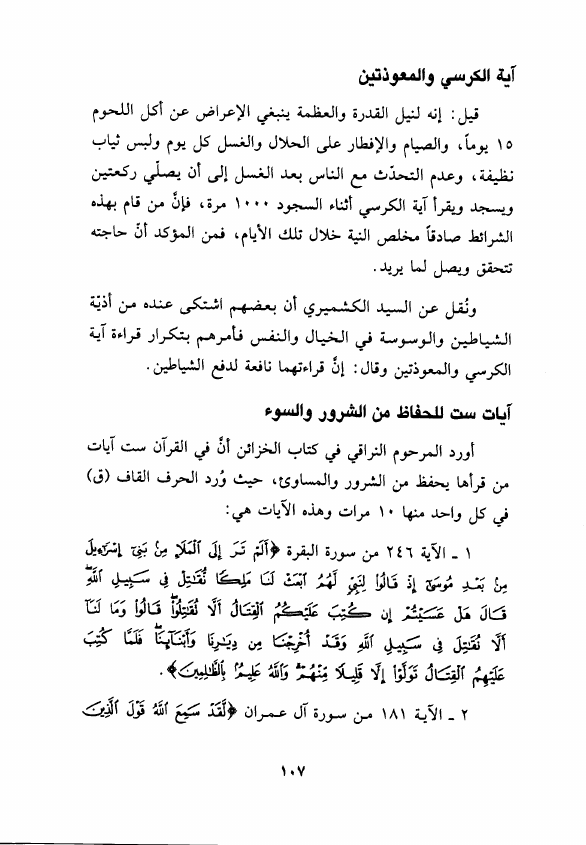 آية الكرسي والمعوذتين
قيل: إنه لنيل القدرة والعظمة ينبغي الإعراض عن أكل اللحوم
١٥ يوماً، والصيام والإفطار على الحلال والغسل كل يوم ولبس ثياب
نظيفة، وعدم التحدّث مع الناس بعد الغسل إلى أن يصلّي ركعتين
ويسجد ويقرأ آية الكرسي أثناء السجود ١٠٠٠ مرة، فإنَّ من قام بهذه
الشرائط صادقاً مخلص النية خلال تلك الأيام، فمن المؤكد أنّ حاجته
تتحقق ويصل لما يريد.
ونُقل عن السيد الكشميري أن بعضهم اشتكى عنده من أذيّة
الشياطين والوسوسة في الخيال والنفس فأمرهم بتكرار قراءة آية
الكرسي والمعوذتين وقال: إنَّ قراءتهما نافعة لدفع الشياطين.
آيات ست للحفاظ من الشرور والسوء
أورد المرحوم النراقي في كتاب الخزائن أنَّ في القرآن ست آيات
من قرأها يحفظ من الشرور والمساوئ، حيث وُرد الحرف القاف (ق)
في كل واحد منها ١٠ مرات وهذه الآيات هي:
١ ـ الآية ٢٤٦ من سورة البقرة ﴿أَلَمْ تَرَ إِلَى الْمَلَإِ مِنْ بَنِي إِسْرَٰءِيلَ
مِنْ بَعْدِ مُوسَىٰ إِذْ قَالُوا لِنَبِيٍّ لَهُمُ ابْعَثْ لَنَا مَلِكًا نُقَٰتِلْ فِي سَبِيلِ اللَّهِ ۖ
قَالَ هَلْ عَسَيْتُمْ إِن كُتِبَ عَلَيْكُمُ الْقِتَالُ أَلَّا نُقَٰتِلُوا ۖ قَالُوا وَمَا لَنَا
أَلَّا نُقَٰتِلَ فِي سَبِيلِ اللَّهِ وَقَدْ أُخْرِجْنَا مِن دِيَٰرِنَا وَأَبْنَائِنَا ۖ فَلَمَّا كُتِبَ
عَلَيْهِمُ الْقِتَالُ تَوَلَّوْا إِلَّا قَلِيلًا مِنْهُمْ ۗ وَاللَّهُ عَلِيمٌ بِالظَّٰلِمِينَ﴾.
٢ ـ الآية ١٨١ من سورة آل عمران ﴿لَقَدْ سَمِعَ اللَّهُ قَوْلَ الَّذِينَ
١٠٧